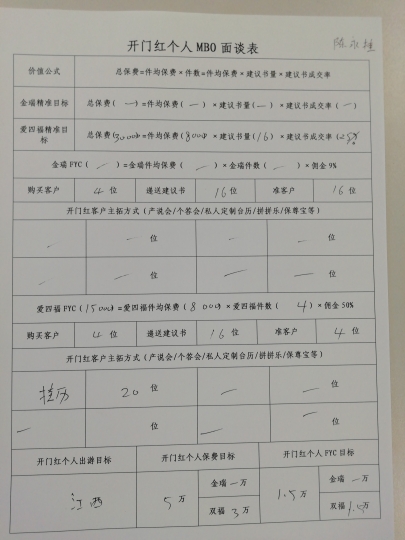 开门红个人 MBO 面谈表
价值公式 总保费=件均保费×件数=件均保费×建议书量×建议书成交率
金瑞精准目标 总保费(—)=件均保费(—)×建议书量(—)×建议书成交率(—)
爱四福精准目标 总保费(30000)=件均保费(8000)×建议书量(16)×建议书成交率(25%)
金瑞 FYC(—)=金瑞件均保费(—)×金瑞件数(—)×佣金 9%
购买客户 4 位 递送建议书 16 位 准客户 16 位
开门红客户主拓方式(产说会/个答会/私人定制台历/拼拼乐/保尊宝等)
— — 位 — — 位
— — 位 — — 位
爱四福 FYC(15000)=爱四福件均保费(8000)×爱四福件数(4)×佣金 50%
购买客户 4 位 递送建议书 16 位 准客户 4 位
开门红客户主拓方式(产说会/个答会/私人定制台历/拼拼乐/保尊宝等)
挂历 20 位 — — 位
— 位 — — 位
开门红个人出游目标 开门红个人保费目标 开门红个人 FYC 目标
江西 5 万 金瑞 — 万 1.5 万 金瑞 — 万
双福 3 万 双福 万